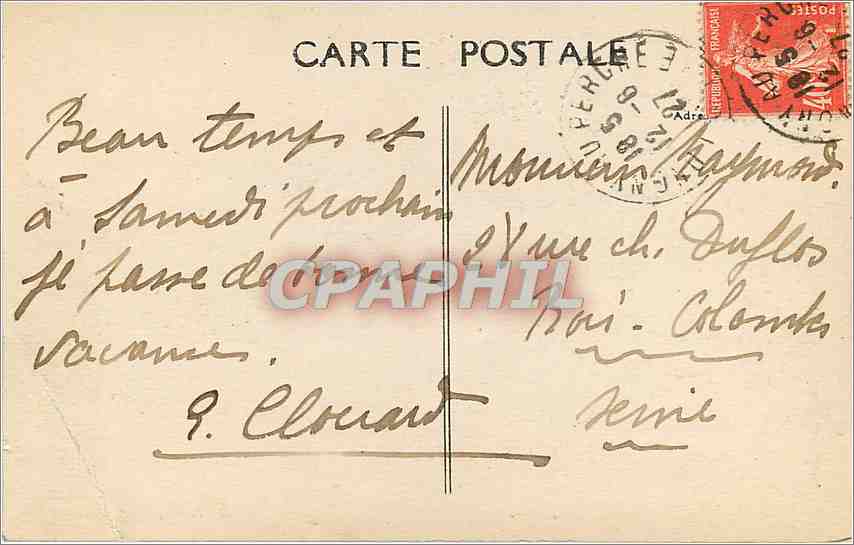 CARTE POSTALE
Beau temps et
à Samedi prochain
je passe de bonnes
vacances.
G. Clouard
Monsieur Raymond.
rue ch. Duflos
Bois-Colombes
Seine
Adre
REPUBLIQUE FRANÇAISE
POSTES
40
AU PERCHE
18 5
12 -6
27
CPAPHIL